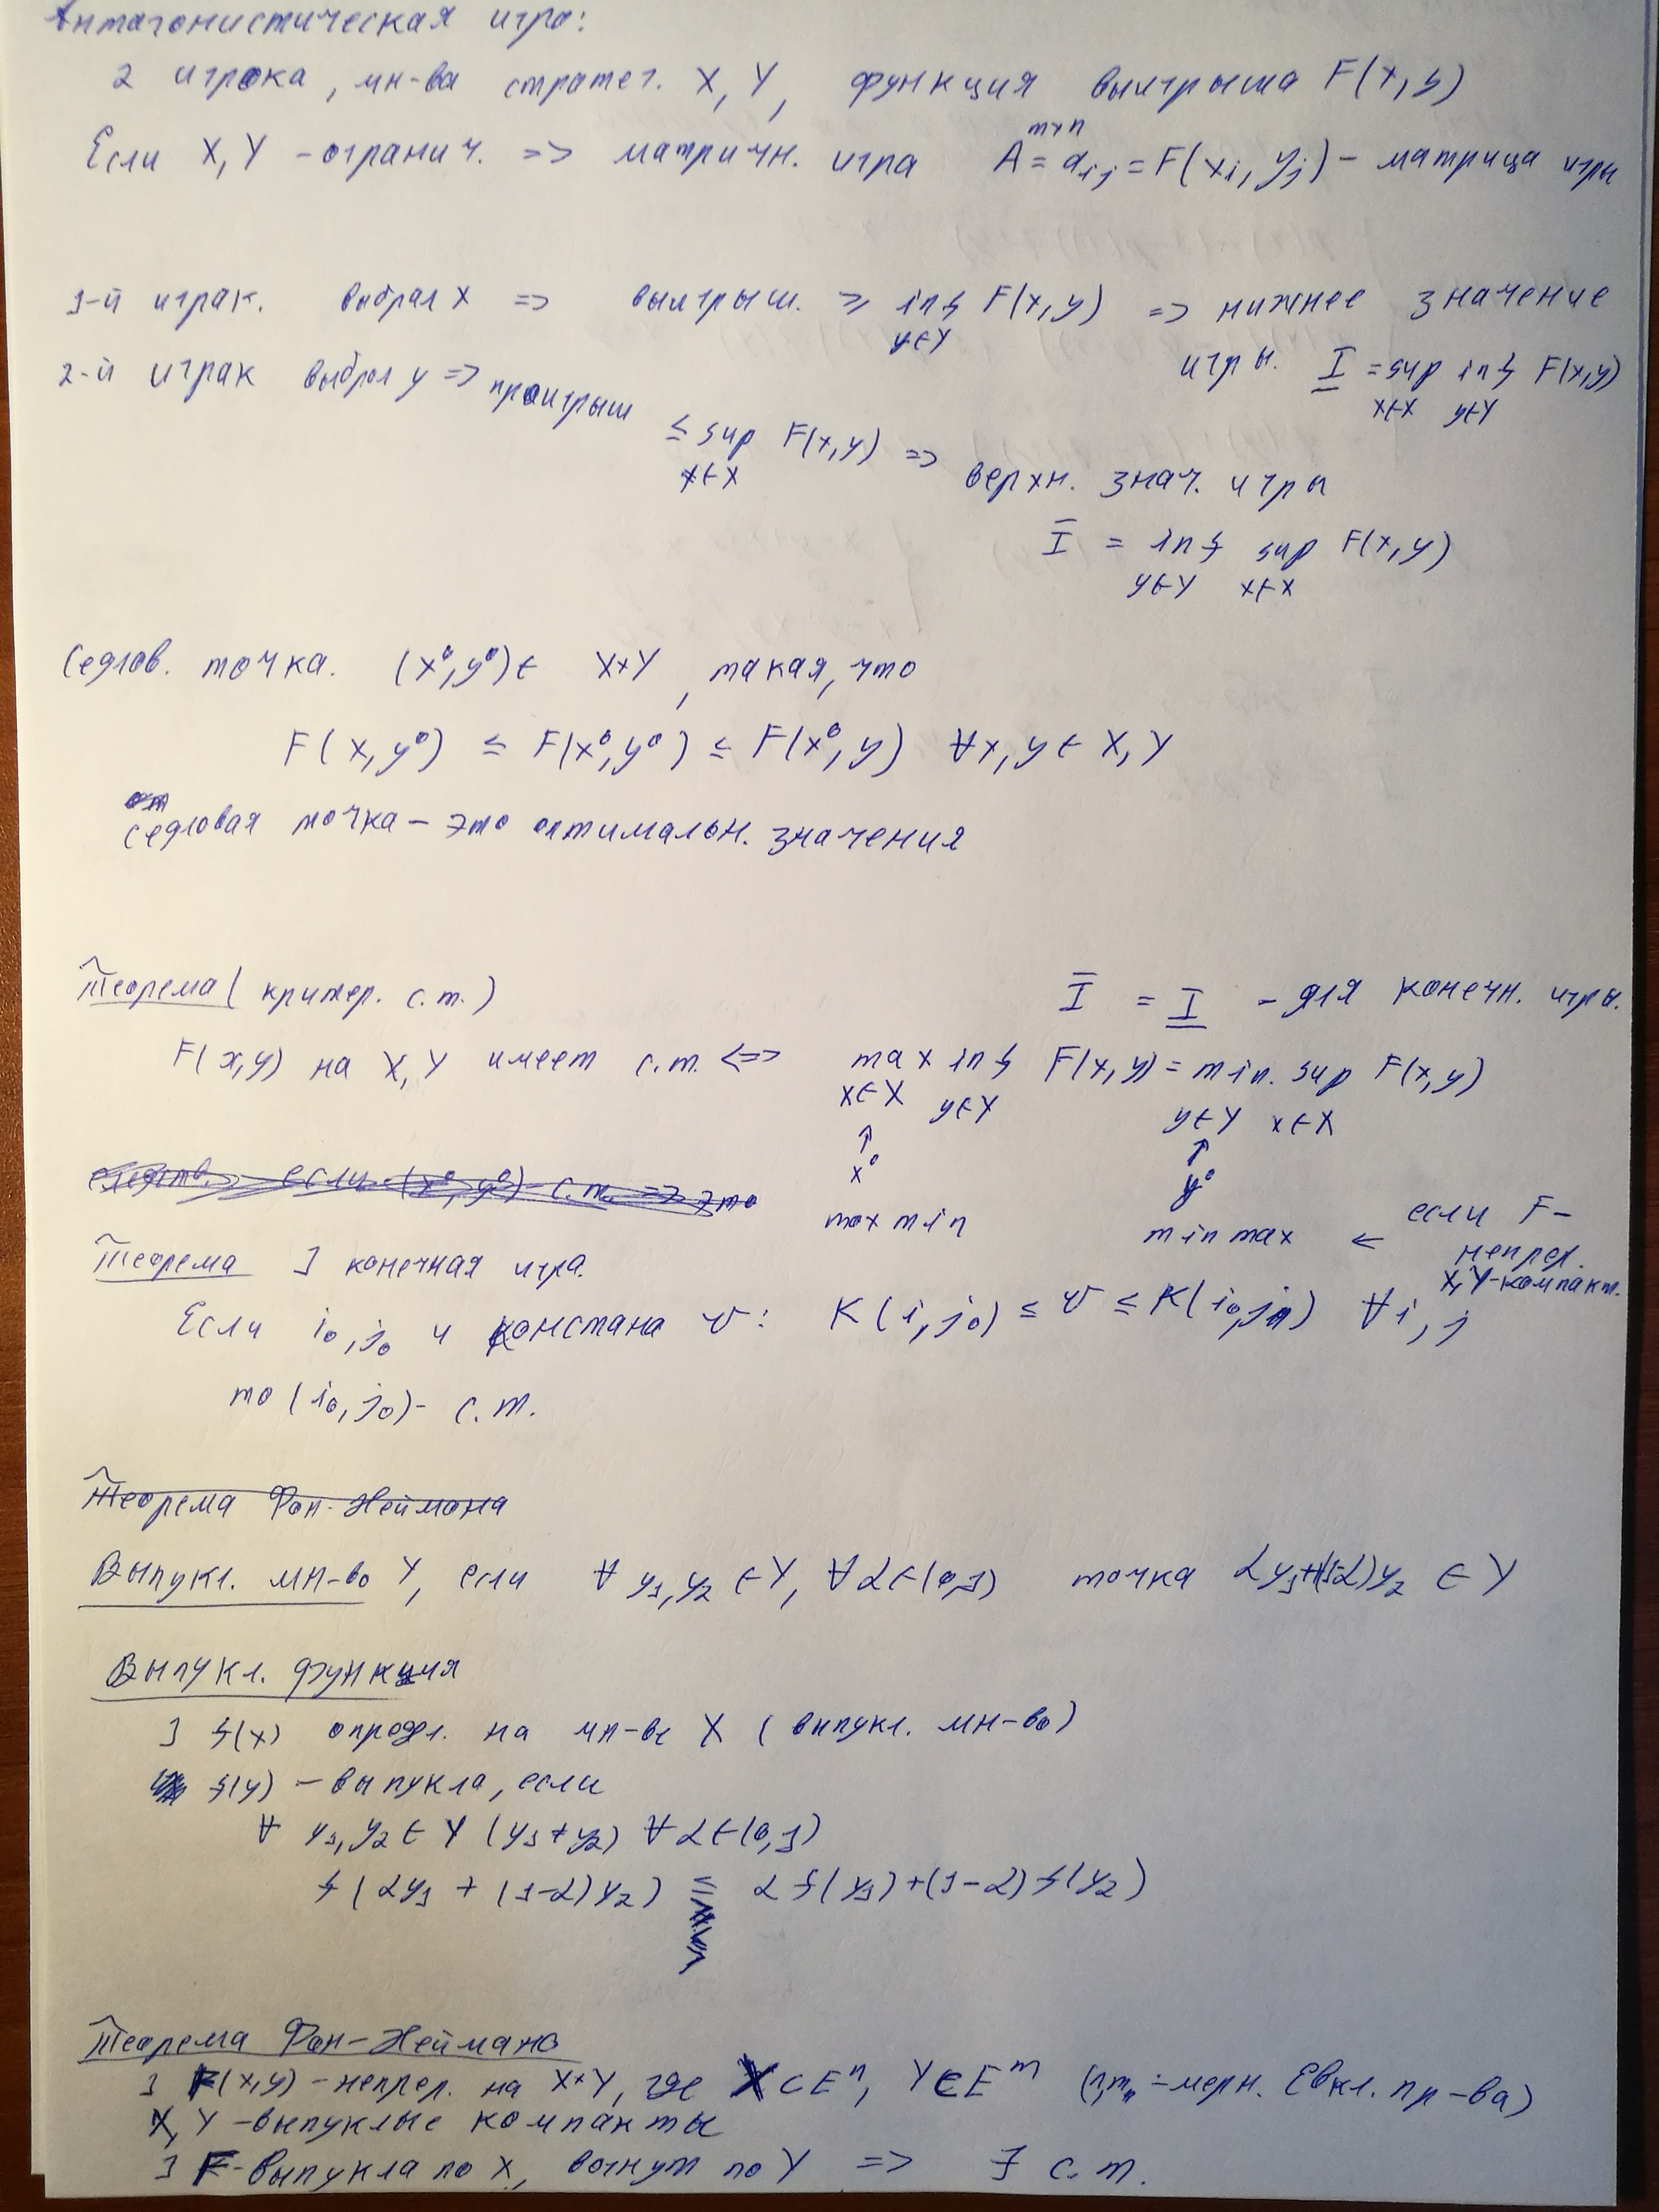 Антагонистическая игра:
2 игрока, мн-ва стратег. X, Y, функция выигрыша F(x,y)
Если X, Y - огранич. => матричн. игра A^{m×n} = a_{ij} = F(x_i, y_j) - матрица игры
1-й играк. выбрал x => выигрыш. ≥ inf_{y∈Y} F(x,y) => нижнее значение
игры. I̲ = sup_{x∈X} inf_{y∈Y} F(x,y)
2-й играк выбрал y => проигрыш ≤ sup_{x∈X} F(x,y) => верхн. знач. игры
Ī = inf_{y∈Y} sup_{x∈X} F(x,y)
Седлов. точка. (x⁰,y⁰) ∈ X×Y, такая, что
F(x,y⁰) ≤ F(x⁰,y⁰) ≤ F(x⁰,y) ∀x,y ∈ X,Y
седловая точка - это оптимальн. значения
Теорема (критер. с.т.) Ī = I̲ - для конечн. игры.
F(x,y) на X,Y имеет с.т. <=> max_{x∈X} inf_{y∈Y} F(x,y) = min._{y∈Y} sup_{x∈X} F(x,y)
↑ ↑
x⁰ y⁰
следств. если (x⁰,y⁰) с.т. => это
maxmin minmax ← если F - непрер. X,Y-компакт.
Теорема ] конечная игра.
Если i₀,j₀ и констана v: K(i,j₀) ≤ v ≤ K(i₀,j) ∀i,j
то (i₀,j₀)- с.т.
Теорема Фон-Неймана
Выпукл. мн-во Y, если ∀ y₁,y₂ ∈ Y, ∀α∈(0,1) точка αy₁+(1-α)y₂ ∈ Y
Выпукл. функция
] f(x) опредл. на мн-ве X (выпукл. мн-во)
f(y) - выпукла, если
∀ y₁,y₂ ∈ Y (y₁≠y₂) ∀α∈(0,1)
f(αy₁ + (1-α)y₂) ≤ αf(y₁)+(1-α)f(y₂)
Теорема Фон-Неймана
] F(x,y) - непрер. на X×Y, где X⊂Eⁿ, Y⊂Eᵐ (n,m - мерн. Евкл. пр-ва)
X, Y - выпуклые компакты
] F-выпукла по X, вогнут по Y => ∃ с.т.